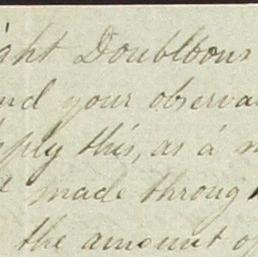 ight Doublbons
nd your observa
pply this, as a m
made throug
the amount of